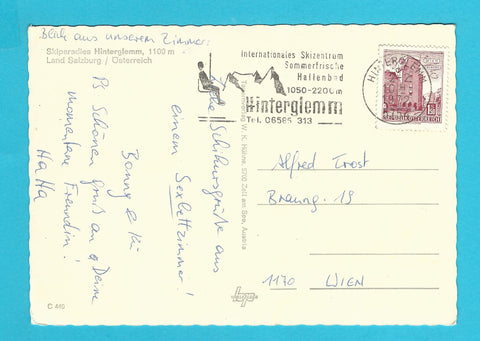 Blick aus unserem Zimmer:
Skiparadies Hinterglemm, 1100 m
Land Salzburg / Österreich
Internationales Skizentrum
Sommerfrische
Hallenbad
1050-2200m
Hinterglemm
Tel. 06565 313
HINTERGLEMM
REPUBLIK ÖSTERREICH
Schikursgrüße aus
einem Sexbettzimmer!
Bonny &
PS Schönen Gruß an Deine
momentane Freundin!
HaHa
W. K. Hülne, 5700 Zell am See, Austria
Alfred Trost
Braung. 19
1170 WIEN
C 440